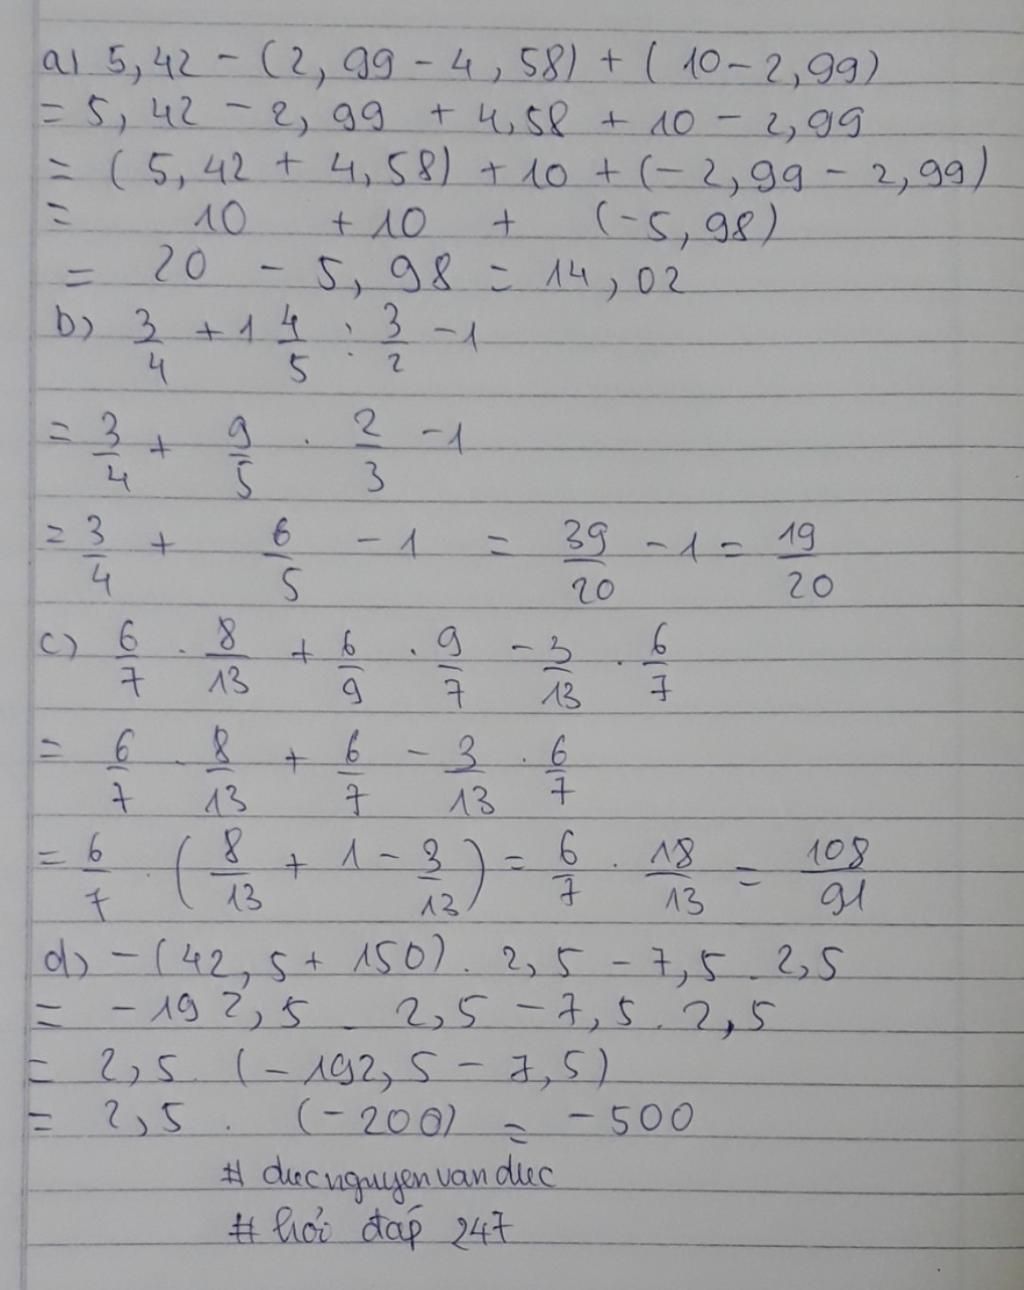 a) 5,42 - (2,99 - 4,58) + (10 - 2,99)
= 5,42 - 2,99 + 4,58 + 10 - 2,99
= (5,42 + 4,58) + 10 + (-2,99 - 2,99)
= 10 + 10 + (-5,98)
= 20 - 5,98 = 14,02
b) 3/4 + 1 4/5 : 3/2 - 1
= 3/4 + 9/5 . 2/3 - 1
= 3/4 + 6/5 - 1 = 39/20 - 1 = 19/20
c) 6/7 . 8/13 + 6/9 . 9/7 - 3/13 . 6/7
= 6/7 . 8/13 + 6/7 - 3/13 . 6/7
= 6/7 . (8/13 + 1 - 3/13) = 6/7 . 18/13 = 108/91
d) - (42,5 + 150) . 2,5 - 7,5 . 2,5
= - 192,5 . 2,5 - 7,5 . 2,5
= 2,5 . (-192,5 - 7,5)
= 2,5 . (-200) = -500
# ducnguyenvanduc
# hỏi đáp 247